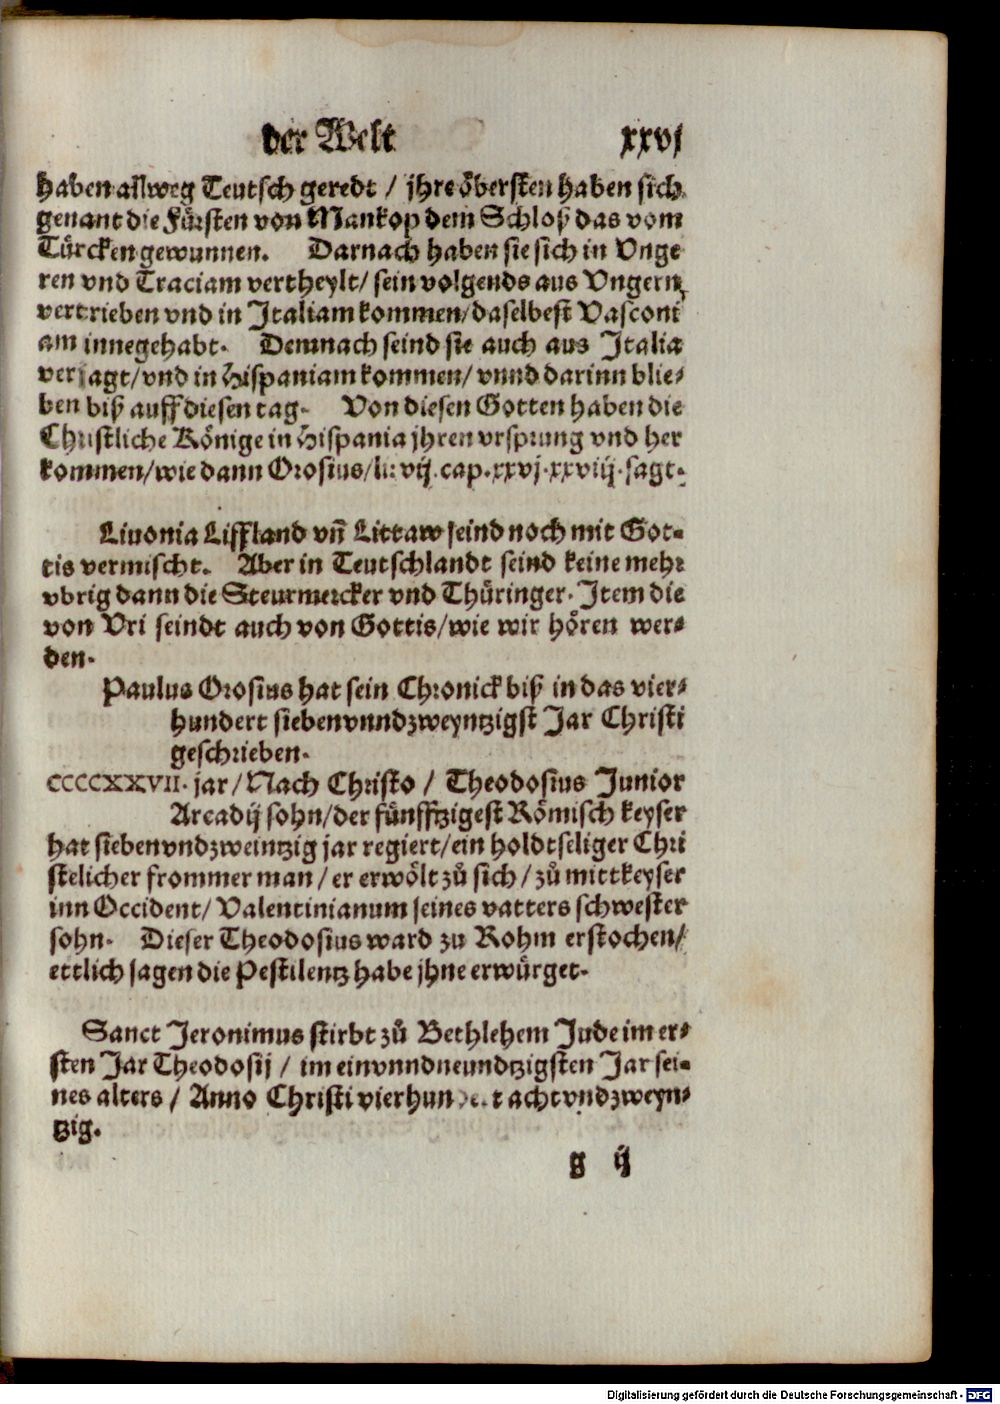 der Welt xxvj
haben allweg Teutsch geredt / jhre öbersten haben sich
genant die Fürsten von Mankop dem Schloß das vom
Türcken gewunnen. Darnach haben sie sich in Vnge
ren vnd Traciam vertheylt / sein volgends aus Vngern
vertrieben vnd in Italiam kommen / daselbest Vasconi
am innegehabt. Demnach seind sie auch aus Italia
verjagt / vnd in Hispaniam kommen / vnnd darinn blie⸗
ben biß auff diesen tag. Von diesen Gotten haben die
Christliche Könige in Hispania jhren vrsprung vnd her
kommen / wie dann Orosius / li: vij. cap. xxvj. xxviij. sagt.
Liuonia Liffland vñ Littaw seind noch mit Got⸗
tis vermischt. Aber in Teutschlandt seind keine mehr
vbrig dann die Steurmercker vnd Thüringer. Item die
von Vri seindt auch von Gottis / wie wir hören wer⸗
den.
Paulus Orosius hat sein Chronick biß in das vier⸗
hundert siebenvnndzweyntzigst Jar Christi
geschrieben.
CCCCXXVII. jar / Nach Christo / Theodosius Junior
Arcadij sohn / der fünfftzigest Römisch keyser
hat siebenvndzweintzig jar regiert / ein holdtseliger Chri
stelicher frommer man / er erwölt zů sich / zů mittkeyser
inn Occident / Valentinianum seines vatters schwester
sohn. Dieser Theodosius ward zu Rohm erstochen /
ettlich sagen die Pestilentz habe jhne erwürget.
Sanct Jeronimus stirbt zů Bethlehem Jude im er⸗
sten Jar Theodosij / im einvnndneundtzigsten Jar sei⸗
nes alters / Anno Christi vierhundert achtvndzweyn⸗
tzig.
g ij
Digitalisierung gefördert durch die Deutsche Forschungsgemeinschaft - DFG